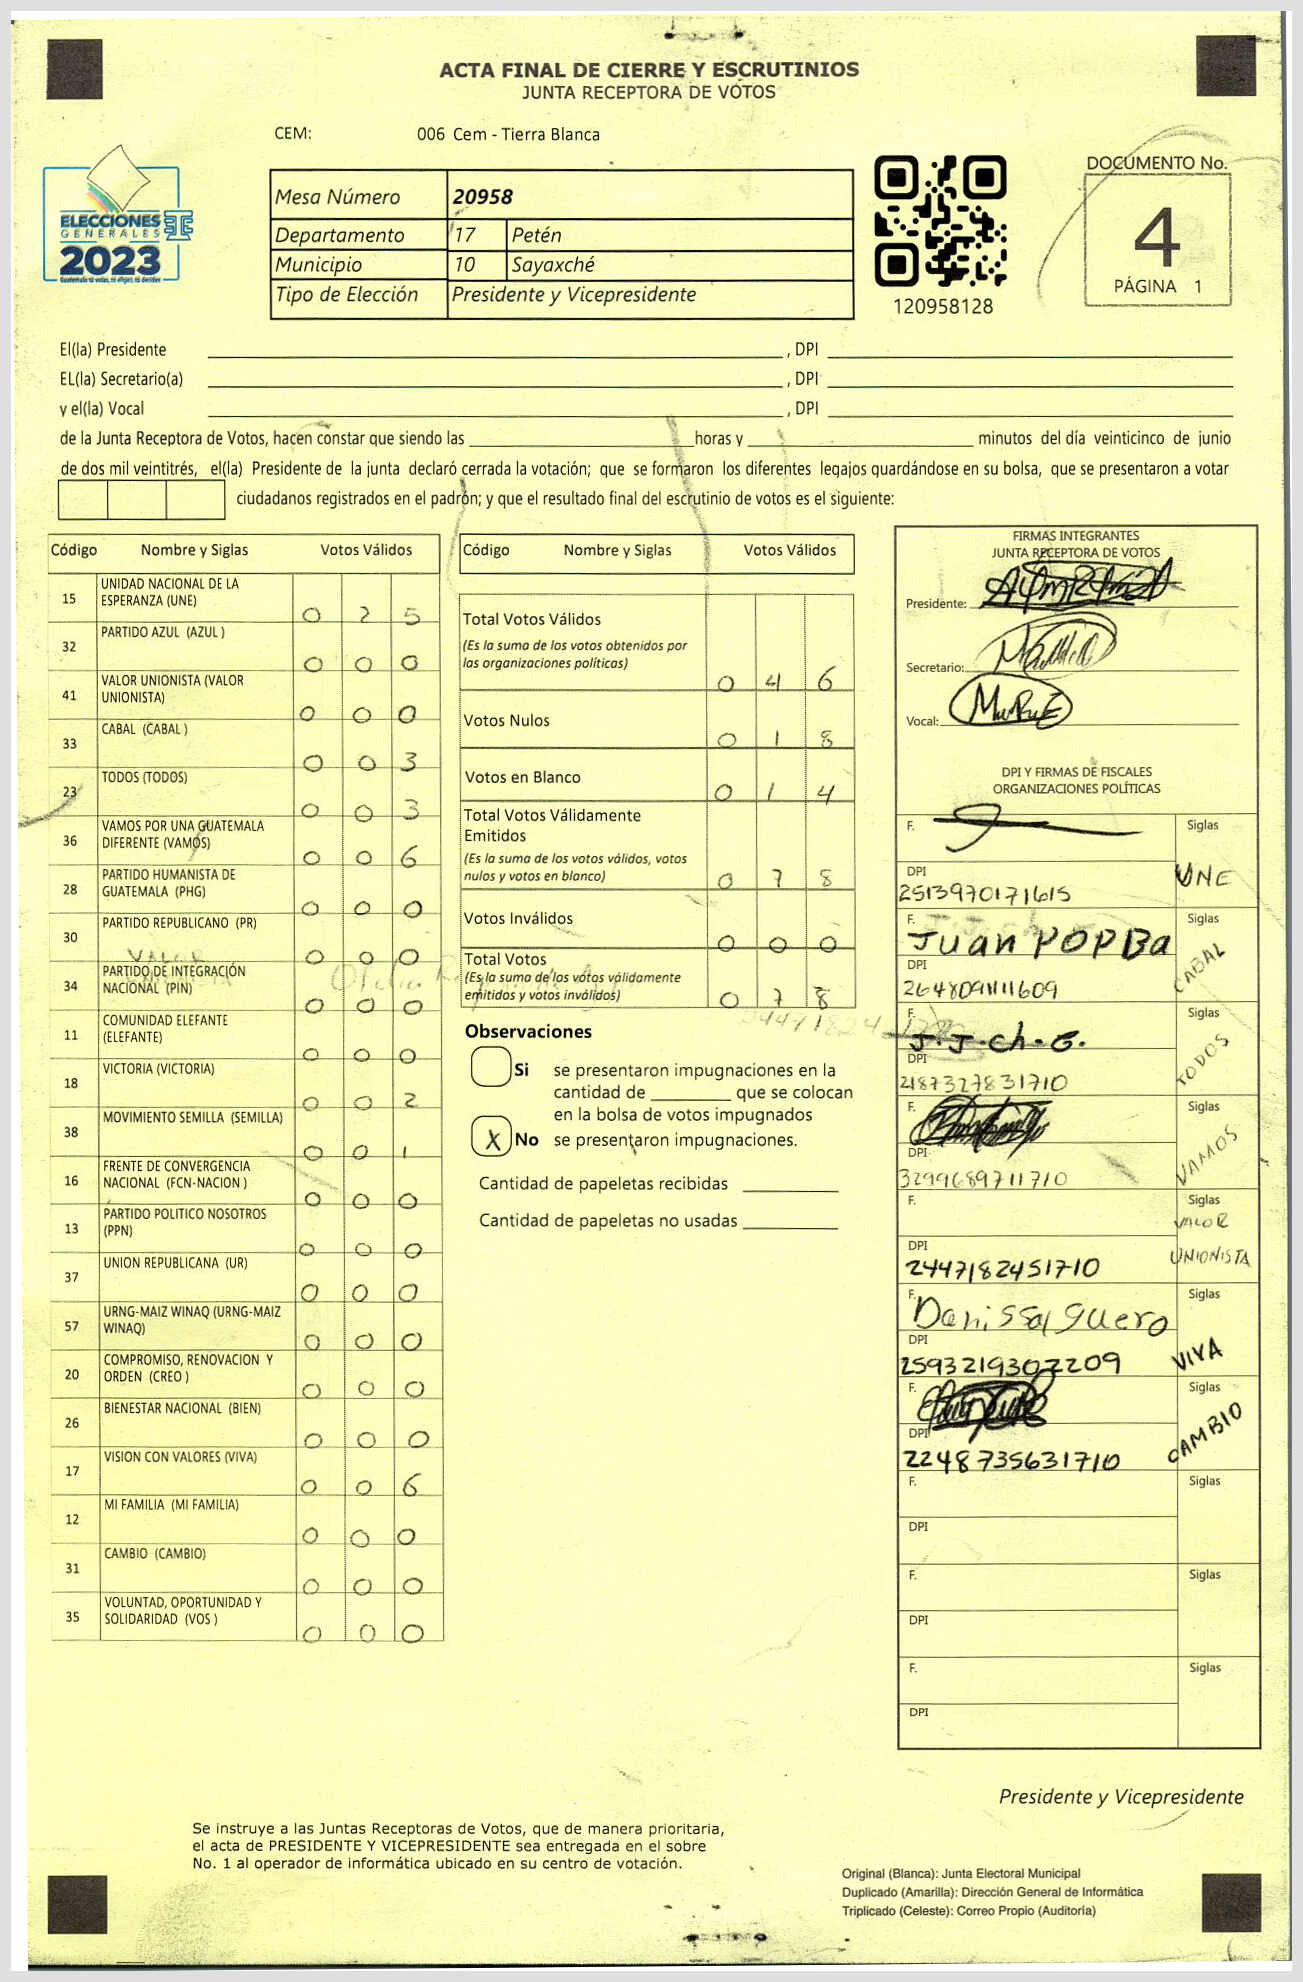 ACTA FINAL DE CIERRE Y ESCRUTINIOS
JUNTA RECEPTORA DE VOTOS
CEM: 006 Cem - Tierra Blanca
ELECCIONES
GENERALES
2023
Mesa Número 20958
Departamento 17 Petén
Municipio 10 Sayaxché
Tipo de Elección Presidente y Vicepresidente
120958128
DOCUMENTO No.
4
PÁGINA 1
El(la) Presidente , DPI
EL(la) Secretario(a) , DPI
y el(la) Vocal , DPI
de la Junta Receptora de Votos, hacen constar que siendo las horas y minutos del día veinticinco de junio
de dos mil veintitrés, el(la) Presidente de la junta declaró cerrada la votación; que se formaron los diferentes legajos quardándose en su bolsa, que se presentaron a votar
ciudadanos registrados en el padrón; y que el resultado final del escrutinio de votos es el siguiente:
Código Nombre y Siglas Votos Válidos
15 UNIDAD NACIONAL DE LA ESPERANZA (UNE) 0 2 5
32 PARTIDO AZUL (AZUL ) 0 0 0
41 VALOR UNIONISTA (VALOR UNIONISTA) 0 0 0
33 CABAL (CABAL ) 0 0 3
23 TODOS (TODOS) 0 0 3
36 VAMOS POR UNA GUATEMALA DIFERENTE (VAMOS) 0 0 6
28 PARTIDO HUMANISTA DE GUATEMALA (PHG) 0 0 0
30 PARTIDO REPUBLICANO (PR) 0 0 0
VALOR
34 PARTIDO DE INTEGRACIÓN NACIONAL (PIN) 0 0 0
11 COMUNIDAD ELEFANTE (ELEFANTE) 0 0 0
18 VICTORIA (VICTORIA) 0 0 2
38 MOVIMIENTO SEMILLA (SEMILLA) 0 0 1
16 FRENTE DE CONVERGENCIA NACIONAL (FCN-NACION ) 0 0 0
13 PARTIDO POLITICO NOSOTROS (PPN) 0 0 0
37 UNION REPUBLICANA (UR) 0 0 0
57 URNG-MAIZ WINAQ (URNG-MAIZ WINAQ) 0 0 0
20 COMPROMISO, RENOVACION Y ORDEN (CREO ) 0 0 0
26 BIENESTAR NACIONAL (BIEN) 0 0 0
17 VISION CON VALORES (VIVA) 0 0 6
12 MI FAMILIA (MI FAMILIA) 0 0 0
31 CAMBIO (CAMBIO) 0 0 0
35 VOLUNTAD, OPORTUNIDAD Y SOLIDARIDAD (VOS ) 0 0 0
Código Nombre y Siglas Votos Válidos
Total Votos Válidos
(Es la suma de los votos obtenidos por
las organizaciones políticas) 0 4 6
Votos Nulos 0 1 8
Votos en Blanco 0 1 4
Total Votos Válidamente
Emitidos
(Es la suma de los votos válidos, votos
nulos y votos en blanco) 0 7 8
Votos Inválidos 0 0 0
Total Votos
(Es la suma de los votos válidamente
emitidos y votos inválidos) 0 7 8
Observaciones
Si se presentaron impugnaciones en la
cantidad de que se colocan
en la bolsa de votos impugnados
X No se presentaron impugnaciones.
Cantidad de papeletas recibidas
Cantidad de papeletas no usadas
FIRMAS INTEGRANTES
JUNTA RECEPTORA DE VOTOS
Presidente:
Secretario:
Vocal:
DPI Y FIRMAS DE FISCALES
ORGANIZACIONES POLÍTICAS
F. Siglas
DPI UNE
2513970171615
F. Juan POP Ba Siglas
DPI CABAL
2648091111609
F. J.J.Ch.G. Siglas
DPI TODOS
2187327831710
F. Siglas
DPI VAMOS
3299689711710
F. Siglas
VALOR
DPI UNIONISTA
2447182451710
F. Siglas
DPI VIVA
2593219302209
F. Siglas
DPI CAMBIO
2248735631710
F. Siglas
DPI
F. Siglas
DPI
F. Siglas
DPI
Presidente y Vicepresidente
Se instruye a las Juntas Receptoras de Votos, que de manera prioritaria,
el acta de PRESIDENTE Y VICEPRESIDENTE sea entregada en el sobre
No. 1 al operador de informática ubicado en su centro de votación.
Original (Blanca): Junta Electoral Municipal
Duplicado (Amarilla): Dirección General de Informática
Triplicado (Celeste): Correo Propio (Auditoría)